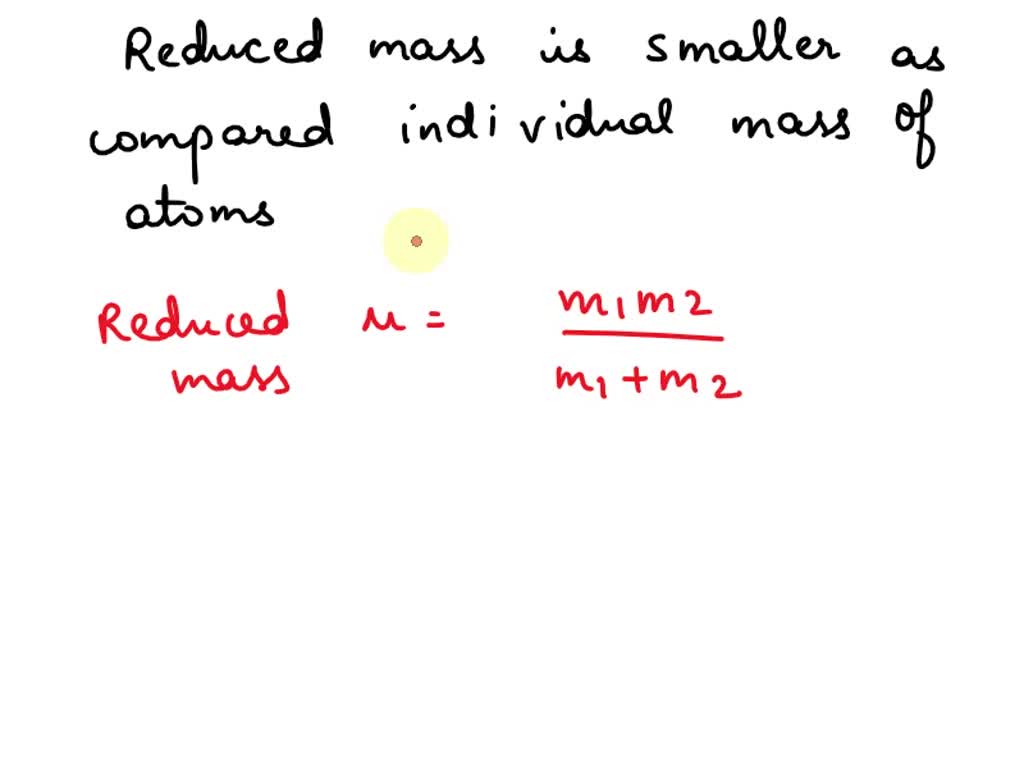 Reduced mass is smaller as
compared individual mass of
atoms
Reduced μ = m1m2
mass m1+m2